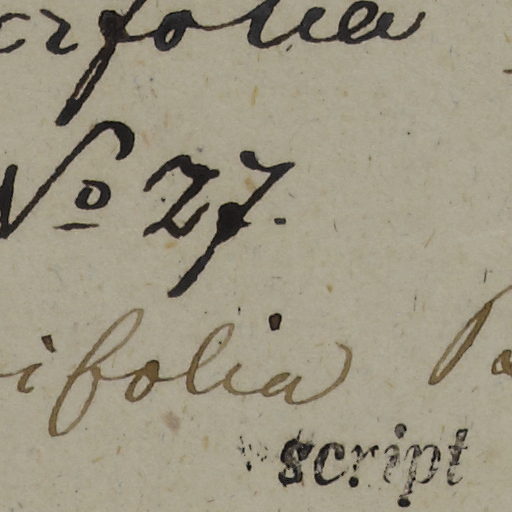 erfolia
No 27.
ifolia
script